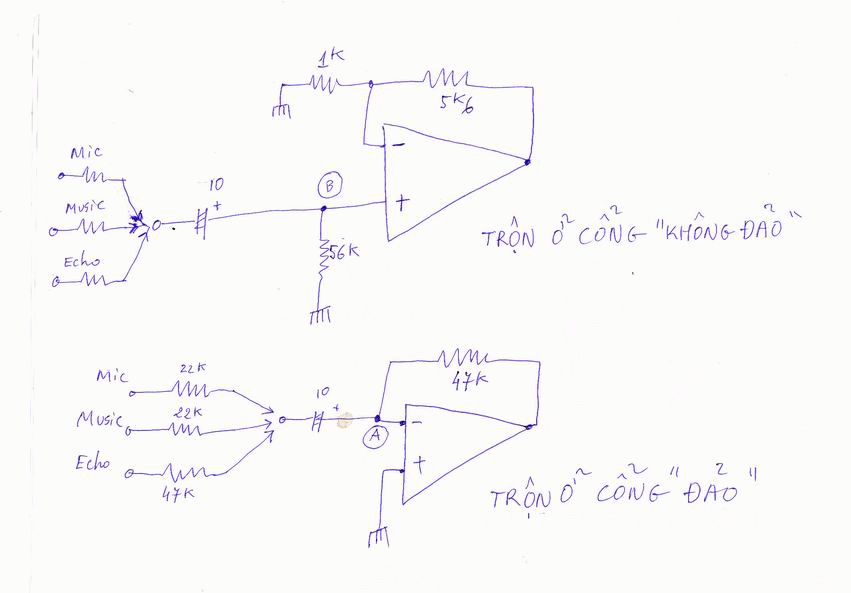 1K
5K6
Mic
10
+
B
−
+
Music
Echo
56K
TRỘN Ở CỔNG "KHÔNG ĐẢO"
Mic
22K
Music
22K
Echo
47K
10
+
A
47K
−
+
TRỘN Ở CỔNG "ĐẢO"